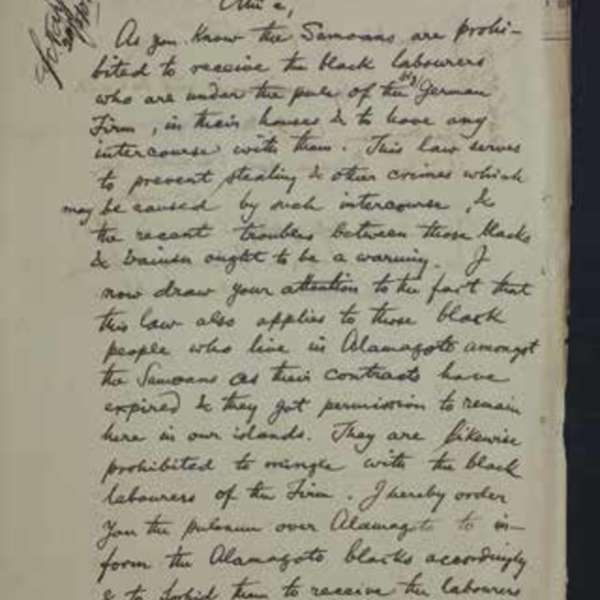 As you know the Samoans are prohi-
bited to receive the black labourers
who are under the pule of the big German
Firm, in their houses & to have any
intercourse with them. This law serves
to prevent stealing & other crimes which
may be caused by such intercourse, &
the recent troubles between those blacks
& Vaimea ought to be a warning. I
now draw your attention to the fact that
this law also applies to those black
people who live in Alamagoto amongst
the Samoans as their contracts have
expired & they got permission to remain
here in our islands. They are likewise
prohibited to mingle with the black
labourers of the Firm. I hereby order
you the pulenuu over Alamagoto to in-
form the Alamagoto blacks accordingly
& to forbid them to receive the labourers